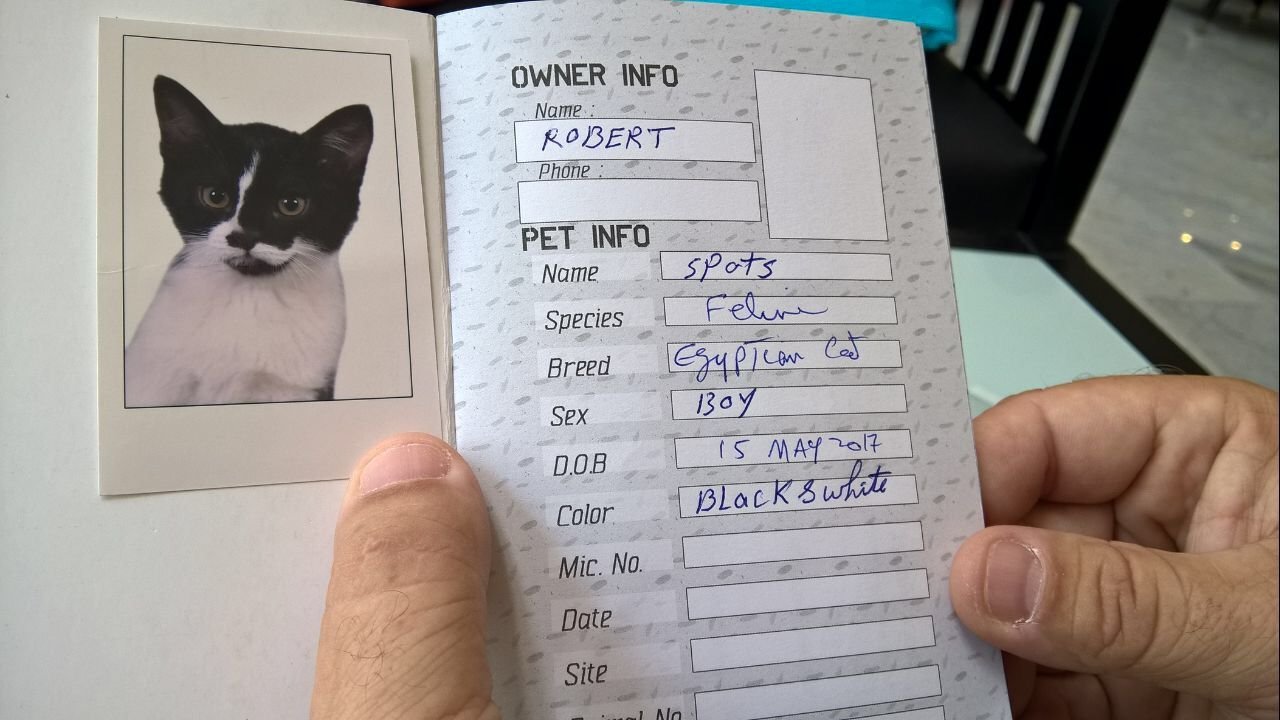 OWNER INFO
Name :
ROBERT
Phone :
PET INFO
Name SPots
Species Feline
Breed Egyptian Cat
Sex Boy
D.O.B 15 MAY 2017
Color BLacK & white
Mic. No.
Date
Site
Animal No